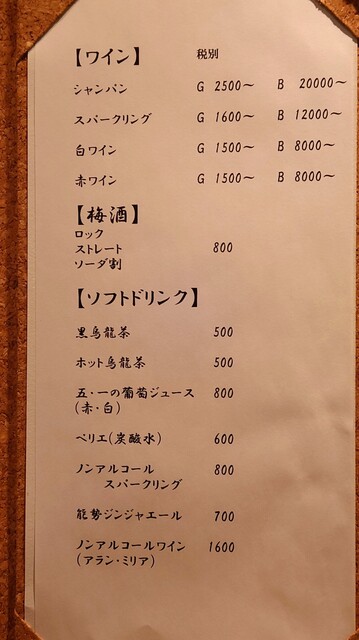 【ワイン】 税別
シャンパン G 2500～ B 20000～
スパークリング G 1600～ B 12000～
白ワイン G 1500～ B 8000～
赤ワイン G 1500～ B 8000～
【梅酒】
ロック
ストレート 800
ソーダ割
【ソフトドリンク】
黒烏龍茶 500
ホット烏龍茶 500
五・一の葡萄ジュース 800
(赤・白)
ペリエ(炭酸水) 600
ノンアルコール 800
スパークリング
能勢ジンジャエール 700
ノンアルコールワイン 1600
(アラン・ミリア)